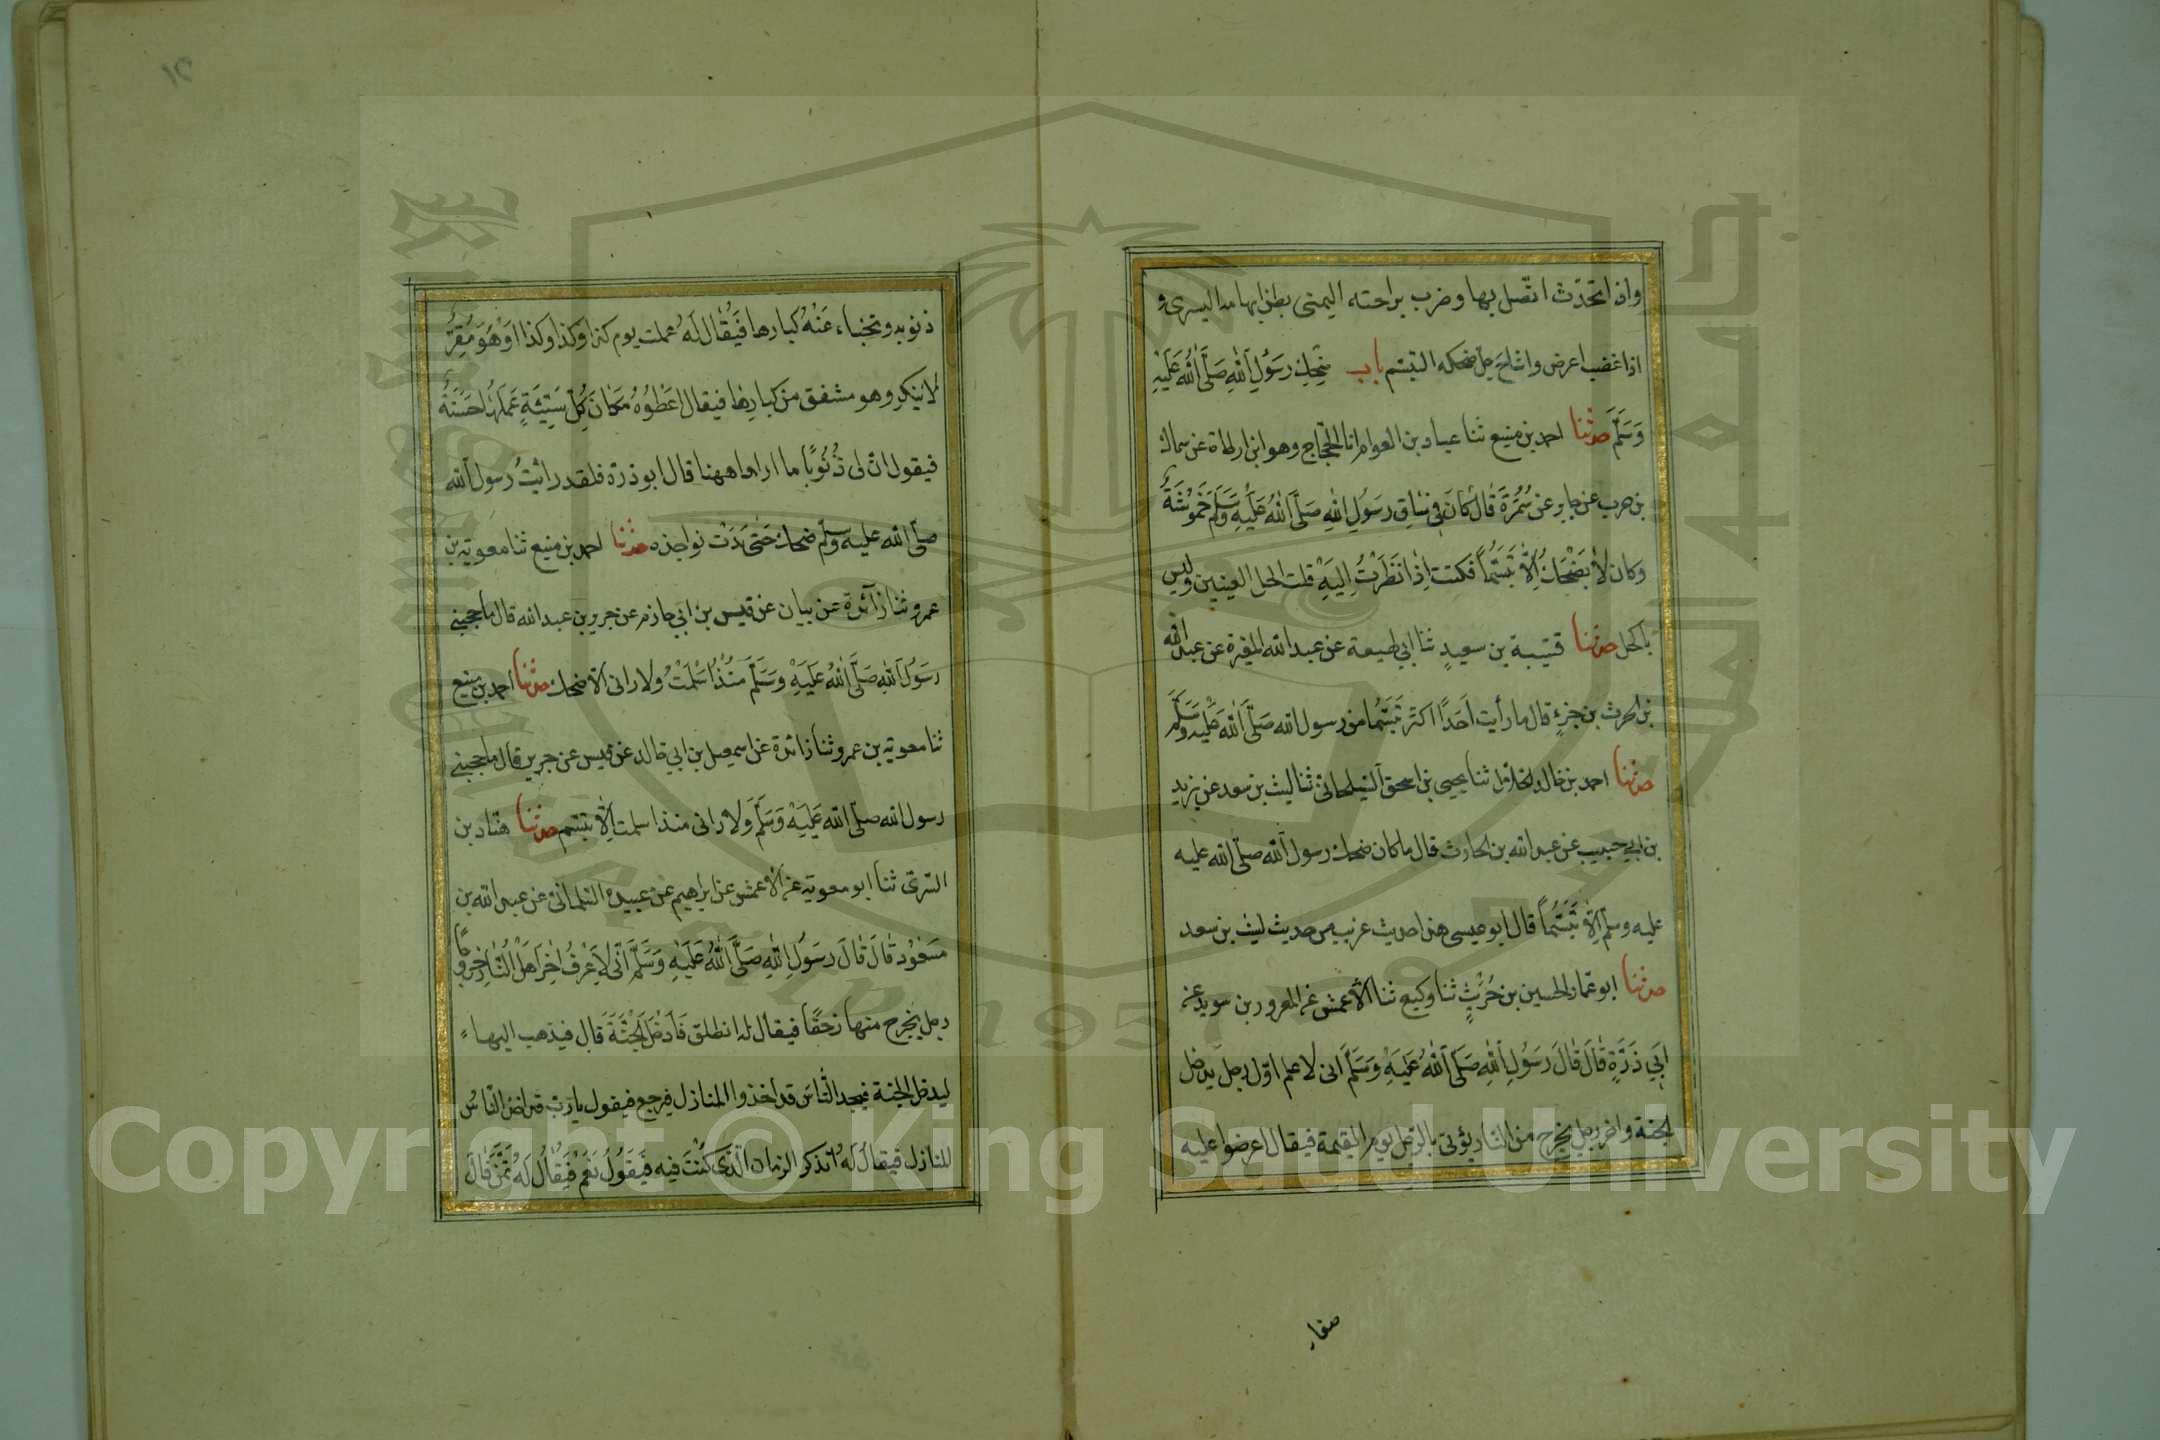 واذا تحدّث اتّصل بها وضرب براحته اليمنى بطن ابهامه اليسرى و
اذا غضب اعرض واشاح جلّ ضحكه التبسّم باب ضِحْكِ رَسُولِ اللّٰهِ صَلَّى اللّٰهُ عَلَيْهِ
وَسَلَّمَ حدثنا احمد بن منيع ثنا عباد بن العوام انا الحجّاج وهو ابن ارطاة عن سماك
بن حرب عن جابر عن سَمُرَةَ قَالَ كَانَ فِي سَاقِ رَسُولِ اللّٰهِ صَلَّى اللّٰهُ عَلَيْهِ وَسَلَّمَ خَمُوشَةٌ
وكان لَا يَضْحَكُ اِلَّا تَبَسُّمًا فكنت اِذَا نَظَرْتُ اِلَيْهِ قلت اكحل العينين وليس
باكحل حدثنا قتيبة بن سعيدٍ ثنا ابي لهيعة عن عبد الله المغيرة عن عبد الله
بن الحرث بن جزءٍ قال ما رأيت اَحَدًا اكثر تَبَسُّمًا من رسول الله صَلَّى اللّٰه عَلَيْه وَسَلَّمَ
حدثنا احمد بن خالد الخلال ثنا يحيى بن اسحق السيلحانى ثنا ليث بن سعد عن يزيد
بن ابي حبيب عن عبد الله بن الحارث قال ما كان ضحك رسول الله صلّى الله عليه
عليه وسلّم اِلَّا تَبَسُّمًا قال ابو عيسى هذا حديث غريب من حديث ليث بن سعد
حدثنا ابو عمار الحسين بن حُرَيْثٍ ثنا وكيع ثنا الأعمش عن المعرور بن سويد عن
اَبِي ذَرَّةٍ قَالَ قَالَ رَسُولِ اللّٰهِ صَلَّى اللّٰهُ عَلَيْهِ وَسَلَّمَ انى لاعلم اوّل رجل يدخل
الجنة واخر رجل يخرج من النار يؤتى بالرّجل يوم القيمة فيقال اعرضوا عليه
صغار
ذنوبه وتخباء عَنْهُ كبارها فَيُقَال لَهُ عملت يوم كذا وكذا وكذا اَوْ هُوَ مُقِرٌّ
لا ينكر وهو مشفق من كبارها فيقال اعطُوهُ مَكَانَ كُلِّ سَيِّئَةٍ عَمِلَهَا حَسَنَةً
فيقول انّ لى ذُنُوبًا ما اراها ههنا قال ابو ذرّة فلقد رائيتُ رسول الله
صلّى الله عليه وسلّم ضحك حَتى بَدَتْ نواجذه حدثنا احمد بن منيع ثنا معوية بن
عمرو ثنا زآئدة عن بيان عن قيس بن ابي حازم عن جرير بن عبد الله قال ما حجبنى
رَسُولَ اللّٰهِ صَلَّى اللّٰهُ عَلَيْهِ وَسَلَّمَ مَنْذُ اَسْلَمْتُ ولا رانى الّا ضحك حدثنا احمد بن منيع
ثنا معوية بن عمرو ثنا زائدة عن اسمعيل بن ابي خالد عن قيس عن جرير قال ما حجبنى
رسول الله صلّى الله عَلَيْهِ وَسَلَّمَ وَلا رانى منذ اسلمت اِلَّا تبسّم حدثنا هنّاد بن
السّرىّ ثنا ابو معوية عن الاعمش عن ابراهيم عن عبيدة السّلمانىّ عن عبد الله بن
مَسْعُود قَالَ قَالَ رَسُولِ اللّٰهِ صَلَّى اللّٰهُ عَلَيْهِ وَسَلَّمَ اَنّى لَاَعْرِفُ اٰخِرَ اَهْلَ النَّار خروجًا
رجل يخرج منها زحفًا فيقال له انطلق فَادخل الْجَنَّةَ قَالَ فيذهب اليها
ليدخل الجنة فيجد النَّاسَ قد اخذوا المنازل فيرجع فيقول يا ربّ قد اخذ النّاسُ
المنازل فيقال لَهُ اتذكر الزمان الّذى كُنْتَ فيه فَيَقُولُ نَعَمْ فَيُقَالُ لَهُ تَمَنَّ قَالَ
١٥
Copyright © King Saud University
1957